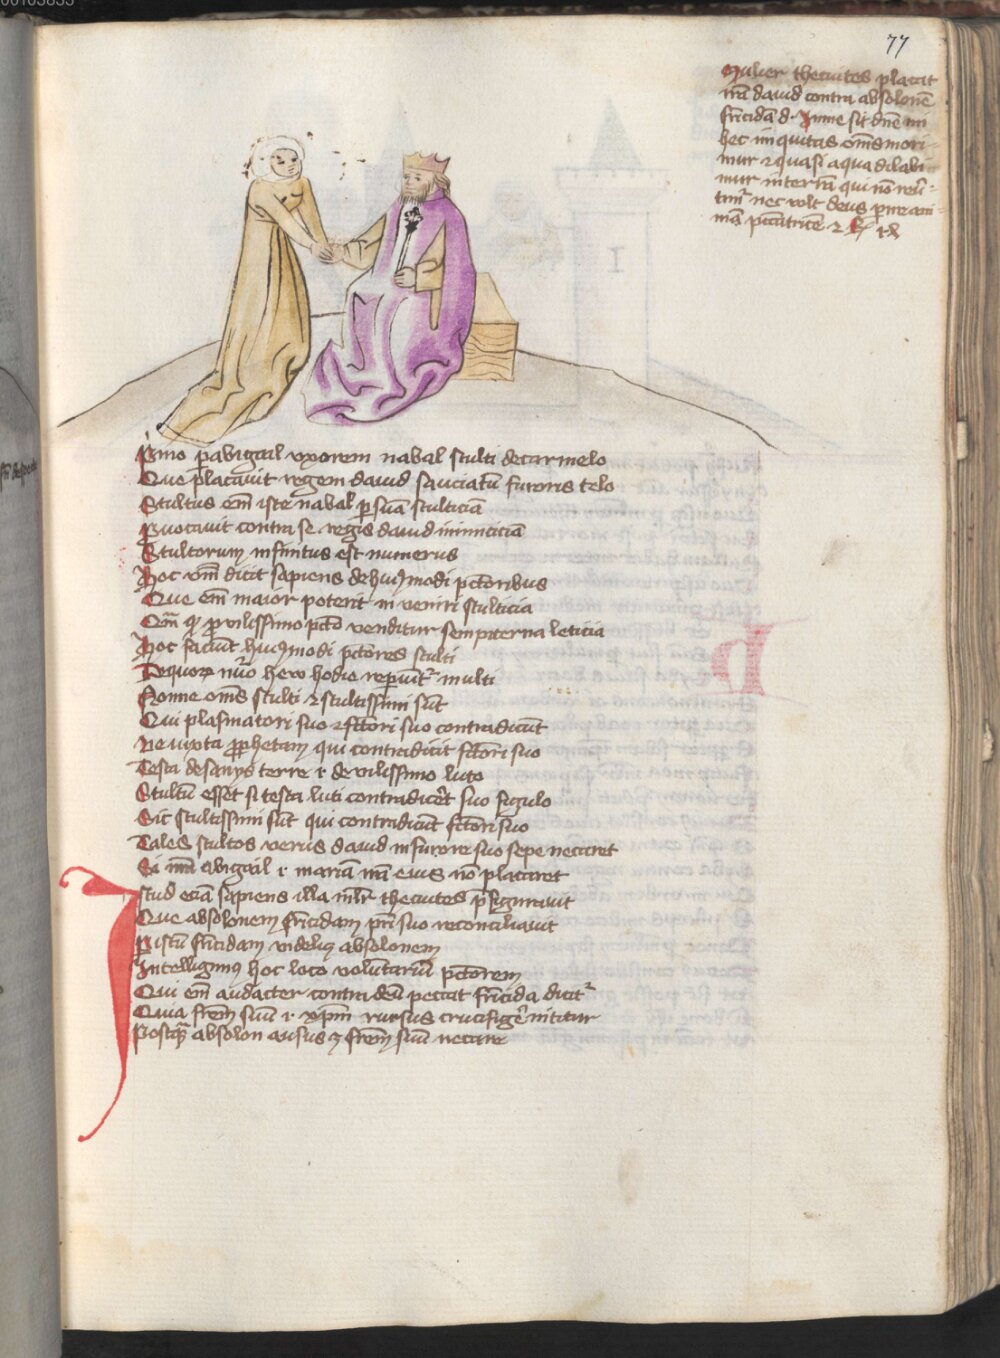 77
Mulier thecuites placat
iram dauid contra absolonem
fratricidam d. In me sit dne mi
hec iniquitas oms mori
mur et quasi aqua dilabi
mur in terram qui non reuer
tuntur nec volt deus perire ani
mam
Primo per abigail vxorem nabal stulti de carmelo
Que placauit regem dauid sauciatum furoris telo
Stultus em iste nabal per suam stulticiam
Prouocauit contra se regis dauid inimiciciam
Stultorum infinitus est numerus
Hoc vm dicit sapiens de huiusmodi pctoribus
Que em maior poterit in veniri stulticia
Qm qr pro vilissimo pcto venditur sempiterna leticia
Hoc faciunt huiusmodi pctores stulti
De quorum nuo hew hodie repiuntur multi
Nonne oms stulti et stultissimi sunt
Qui plasmatori suo et fctori suo contradicunt
Ne iuxta prophetam qui contradicit fctori suo
Testa de sanys terre i de vilissimo luto
Stultum esset si testa luti contradiceret suo figulo
Sic stultissimi sunt qui contradicunt fctori suo
Tales stultos verus dauid in furore suo sepe necaret
Si nra abigail i mariam mam eius non placaret
Istud eciam sapiens illa mlr thecuites prefigurauit
Que absolonem fratricidam pri suo reconciliauit
Per istum fratricidam videlicet absolonem
Intelligimus hoc loco voluntarium pctorem
Qui em audacter contra deum peccat fratricida dicitur
Quia frem suum i xpm rursus crucifigere nititur
Postquam absolon ausus est frem suum necare
I